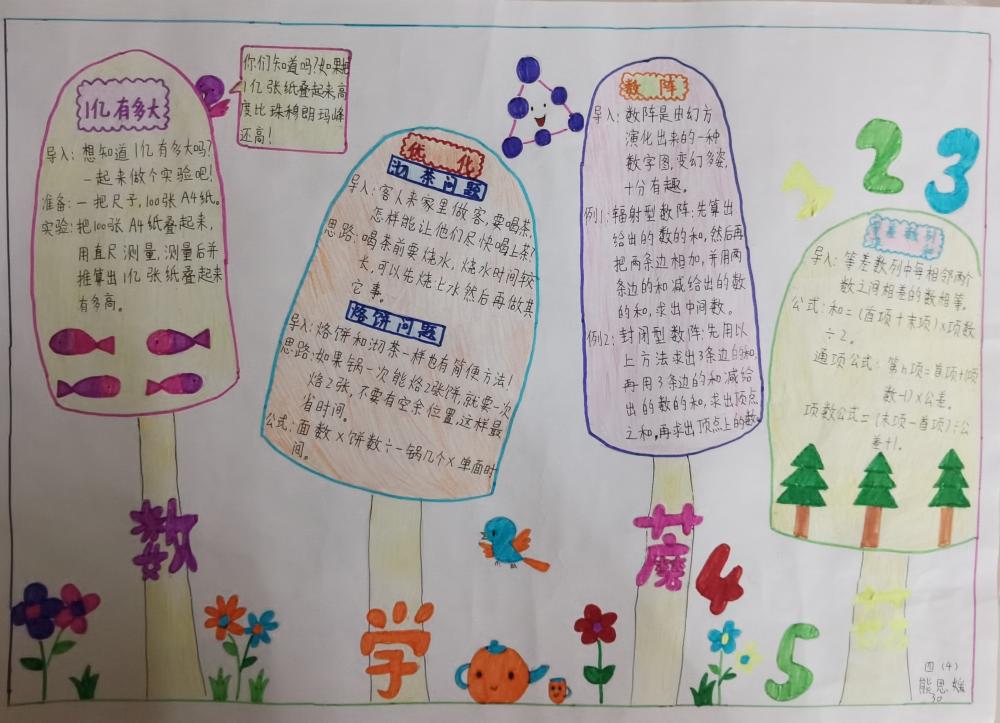 1亿有多大
导入:想知道1亿有多大吗?
一起来做个实验吧!
准备:一把尺子,100张A4纸。
实验:把100张A4纸叠起来,
用直尺测量,测量后并
推算出1亿张纸叠起来
有多高。
你们知道吗?如果把
1亿张纸叠起来,高
度比珠穆朗玛峰
还高!
优化
沏茶问题
导入:客人来家里做客,要喝茶,
怎样能让他们尽快喝上茶?
思路:喝茶前要烧水,烧水时间较
长,可以先烧上水然后再做其
它事。
烙饼问题
导入:烙饼和沏茶一样也有简便方法!
思路:如果锅一次能烙2张饼,就要一次
烙2张,不要有空余位置,这样最
省时间。
公式:面数×饼数÷一锅几个×单面时
间。
数阵
导入:数阵是由幻方
演化出来的一种
数字图,变幻多姿,
十分有趣。
例1:辐射型数阵:先算出
给出的数的和,然后再
把两条边相加,并用两
条边的和减给出的数
的和,求出中间数。
例2:封闭型数阵:先用以
上方法求出3条边的和,
再用3条边的和减给
出的数的和,求出顶点
之和,再求出顶点上的数。
1 2 3
等差数列
导入:等差数列中每相邻两个
数之间相差的数相等。
公式:和=(首项+末项)×项数
÷2。
通项公式:第n项=首项+(项
数-1)×公差。
项数公式=(末项-首项)÷公
差+1。
数
学
蘑
4
5
四(4)
熊思媛
30